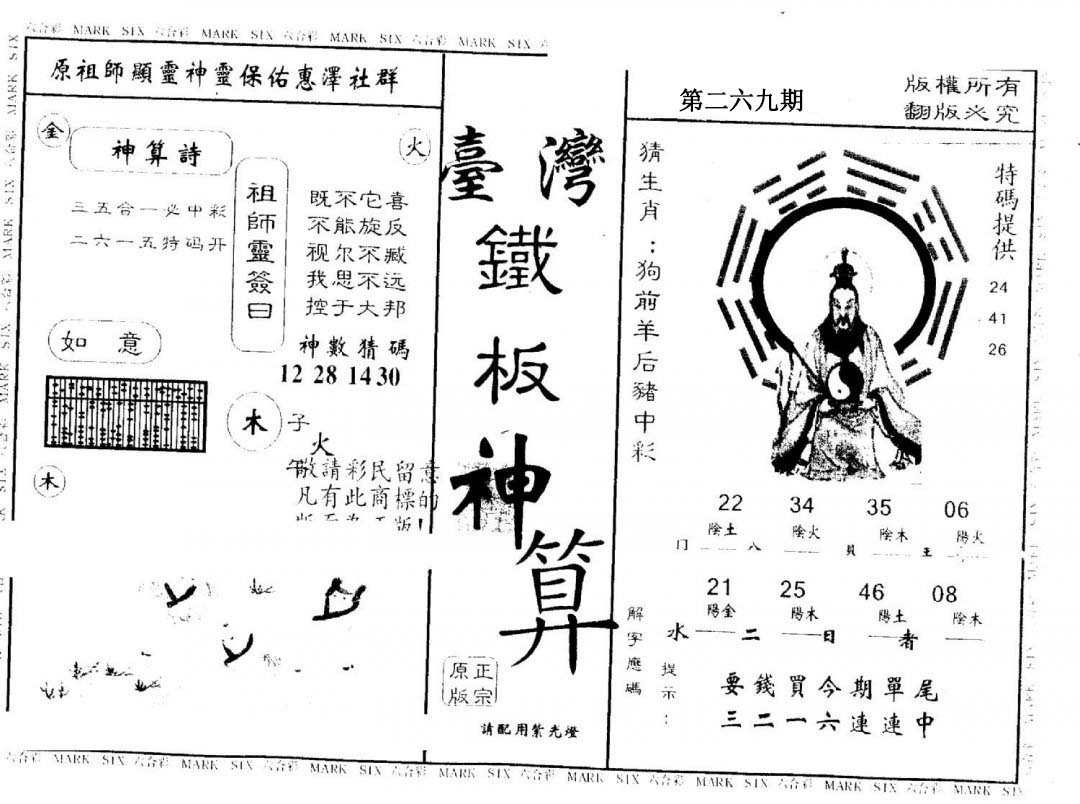 六合彩 MARK SIX 六合彩 MARK SIX 六合彩 MARK SIX 六合彩 MARK SIX
原祖師顯靈神靈保佑惠澤社群
金
神算詩
三五合一必中彩
二六一五特码开
火
祖師靈簽曰
既不它喜
不能旋反
视尔不臧
我思不远
控于大邦
如意
神數猜碼
12 28 14 30
木
子
火
午
木
敬請彩民留意
凡有此商標的
臺灣
鐵
板
神
算
正宗
原版
請配用紫光燈
第二六九期
版權所有
翻版必究
猜生肖：狗前羊后豬中彩
特碼提供
24
41
26
22 34 35 06
陰土 陰火 陰木 陽火
21 25 46 08
陽金 陽木 陽土 陰木
水 二 日 者
解字應碼
提示：
要錢買今期單尾
三二一六連連中
六合彩 MARK SIX 六合彩 MARK SIX 六合彩 MARK SIX 六合彩 MARK SIX 六合彩 MARK SIX 六合彩 MARK SIX 六合彩 MARK SIX 六合彩 MARK SIX